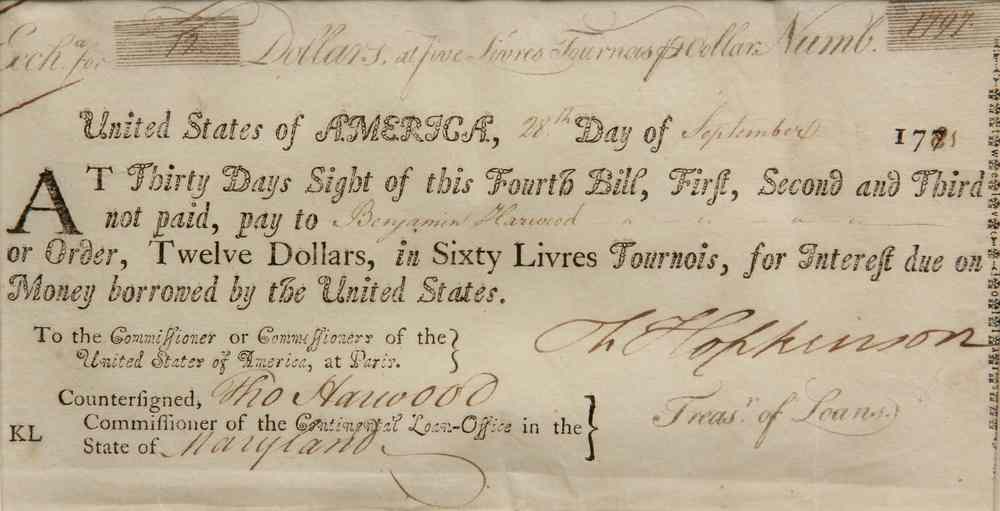 Exchᵃ. for 12 Dollars, at five Livres Tournois ⅌ Dollar. Numb. 1797
United States of AMERICA, 28.th Day of September 1781
AT Thirty Days Sight of this Fourth Bill, Firſt, Second and Third
not paid, pay to Benjamin Harwood
or Order, Twelve Dollars, in Sixty Livres Tournois, for Intereſt due on
Money borrowed by the United States.
To the Commiſſioner or Commiſſioners of the
United States of America, at Paris.
Th Hopkinson
Counterſigned, Tho Harwood
Commiſſioner of the Continental Loan-Office in the
State of Maryland
KL
Treasʳ. of Loans.